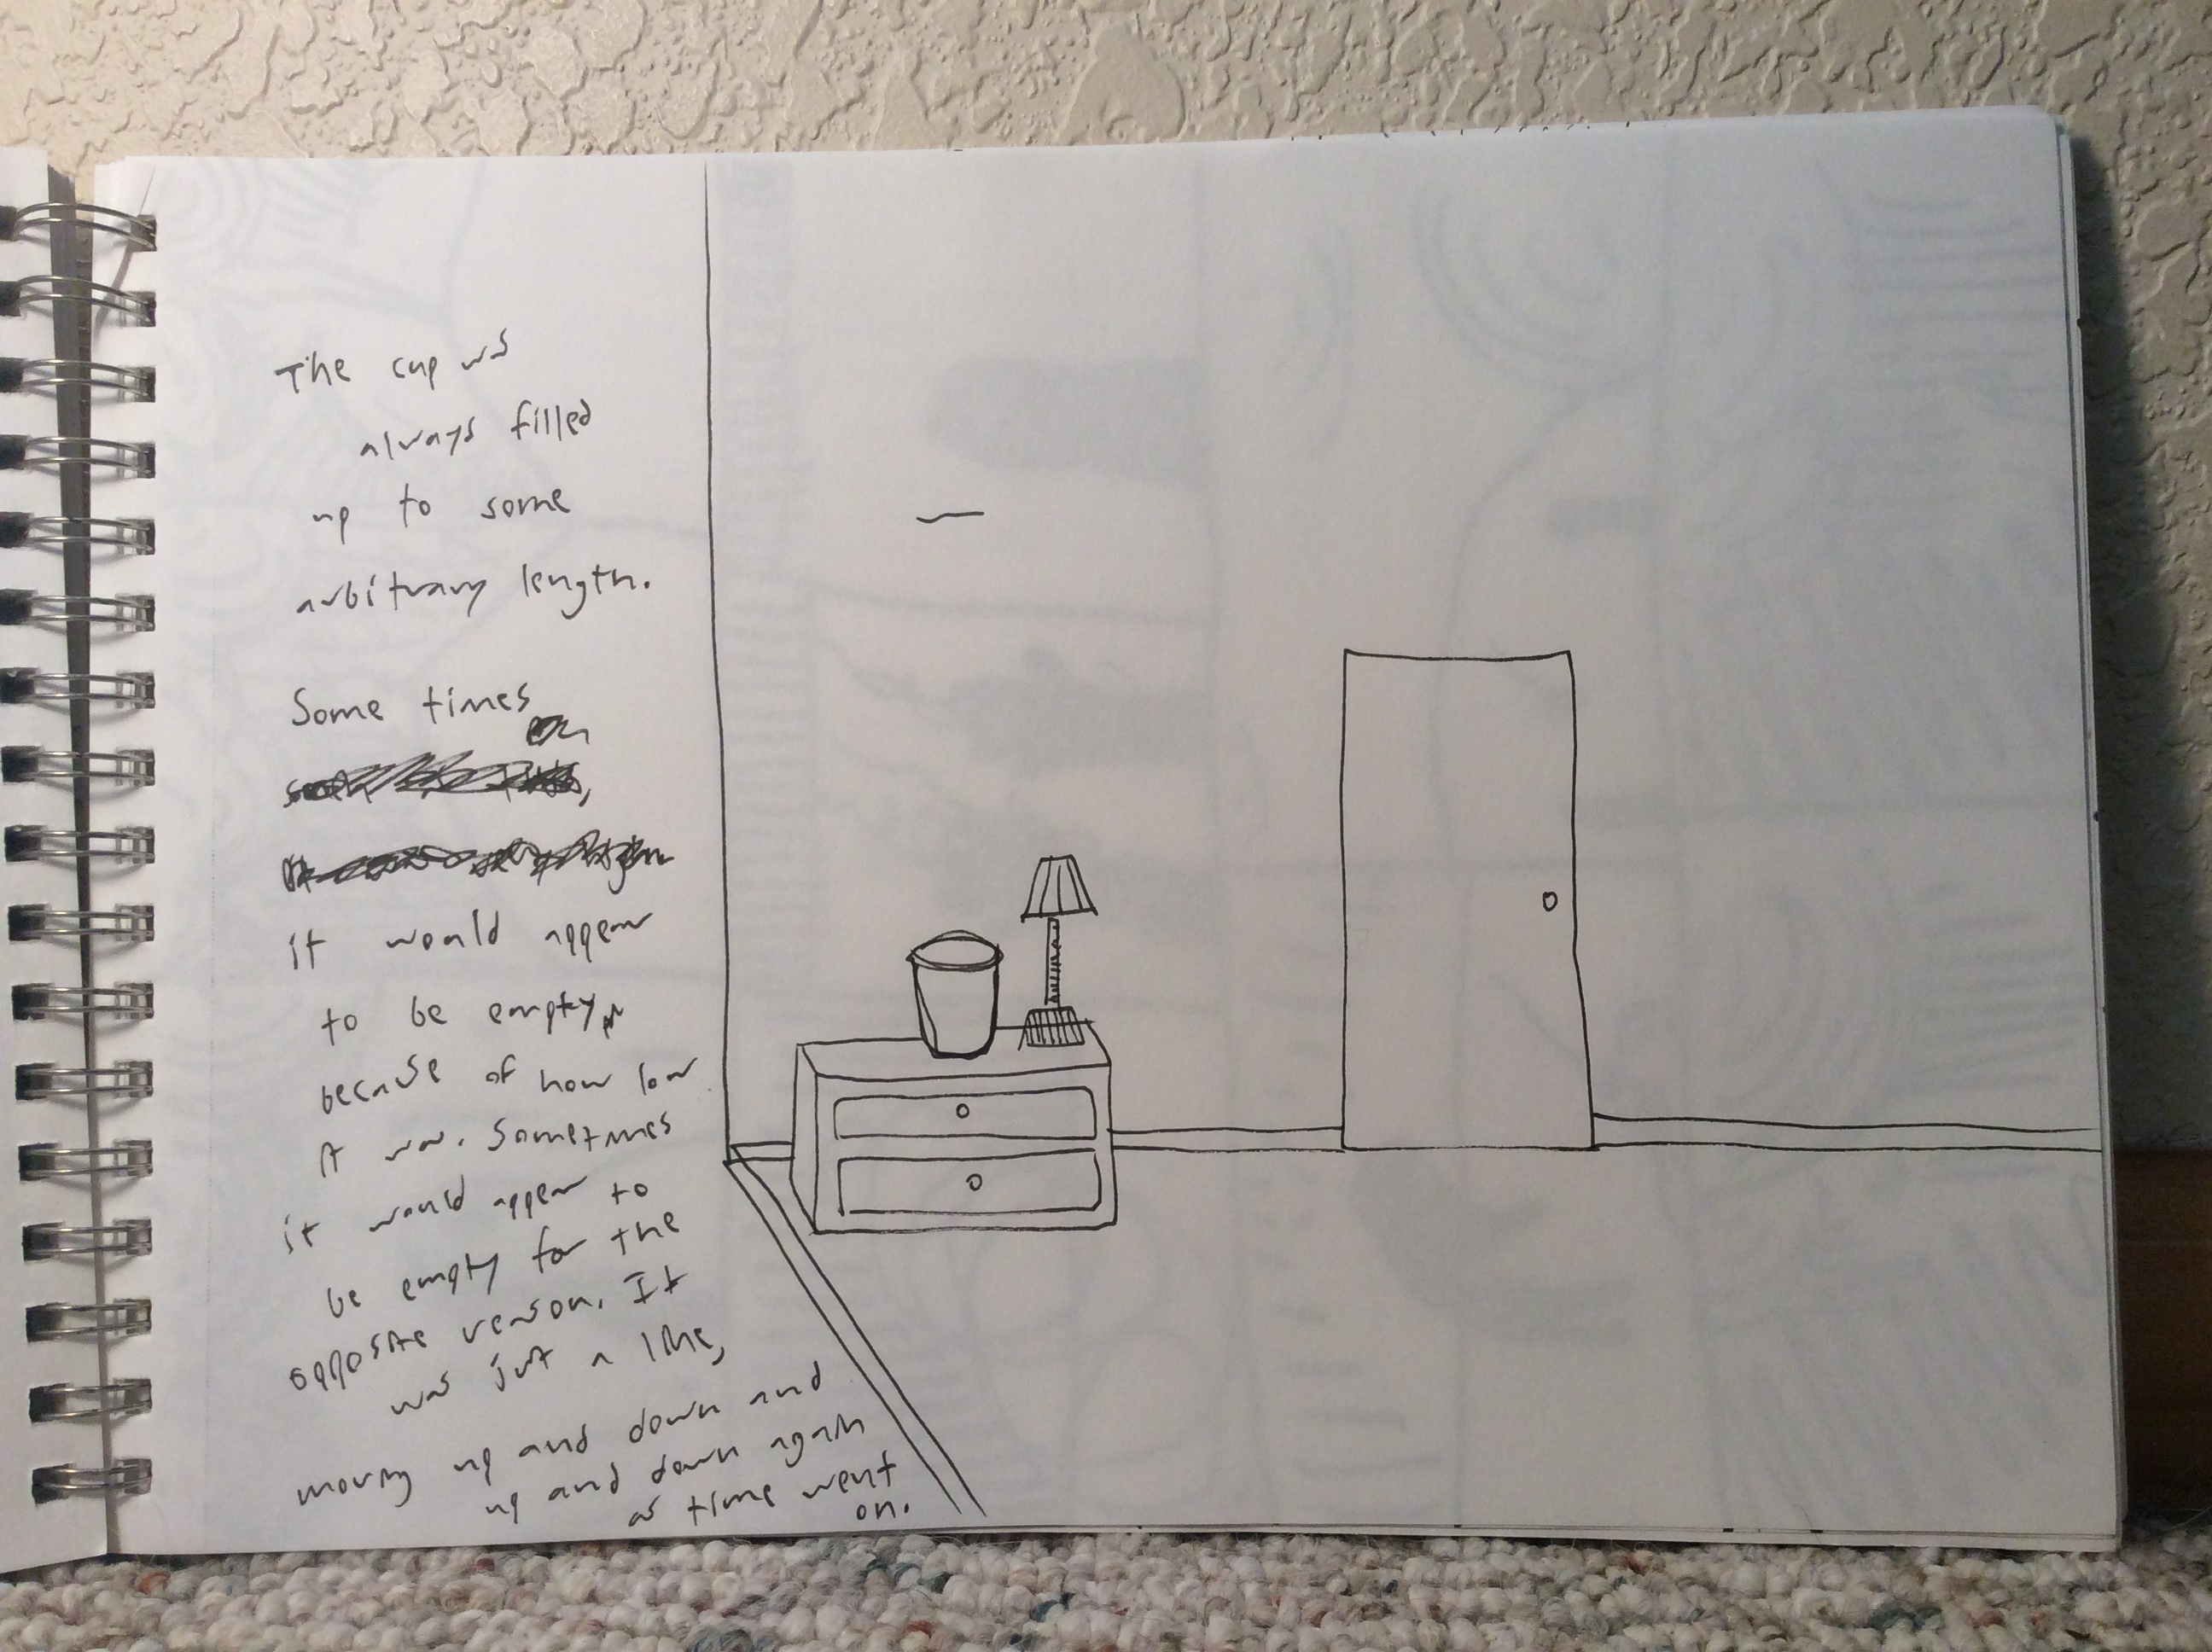 The cup was
always filled
up to some
arbitrary length.
Some times
it would appear
to be empty
because of how low
it was. Sometimes
it would appear to
be empty for the
opposite reason. It
was just a line,
moving up and down and
up and down again
as time went
on.